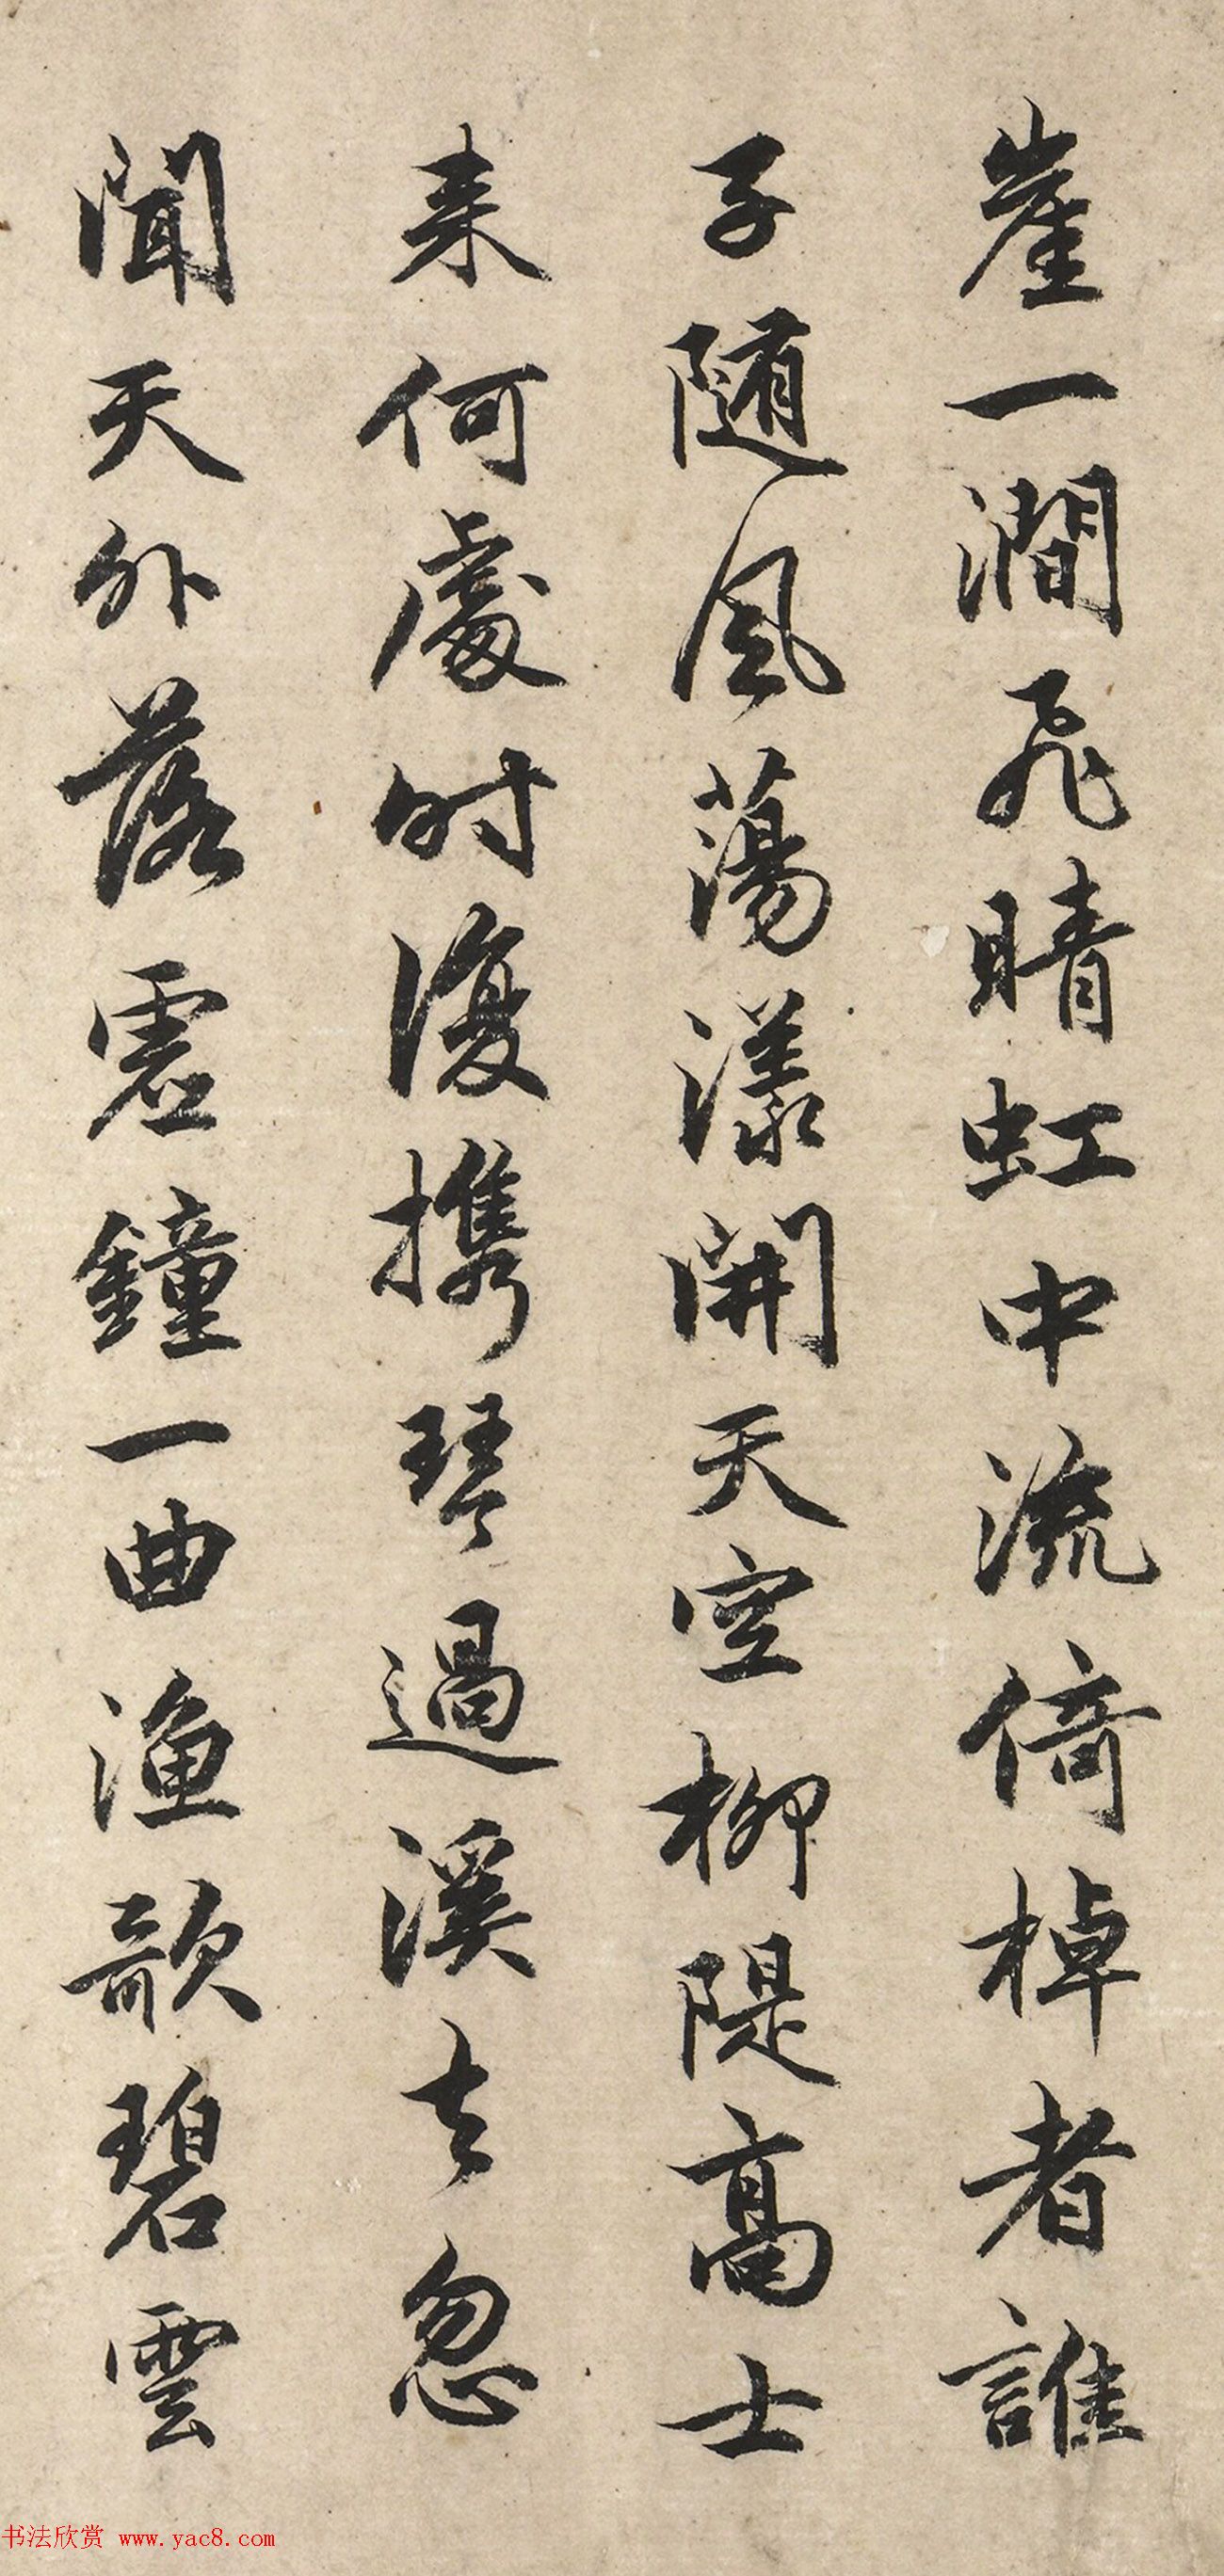 崖一澗飛晴虹中流倚棹者誰
子随風蕩漾開天空柳隄高士
来何處时復携琴過溪去忽
聞天外落雲鐘一曲漁歌碧雲
书法欣赏 www.yac8.com